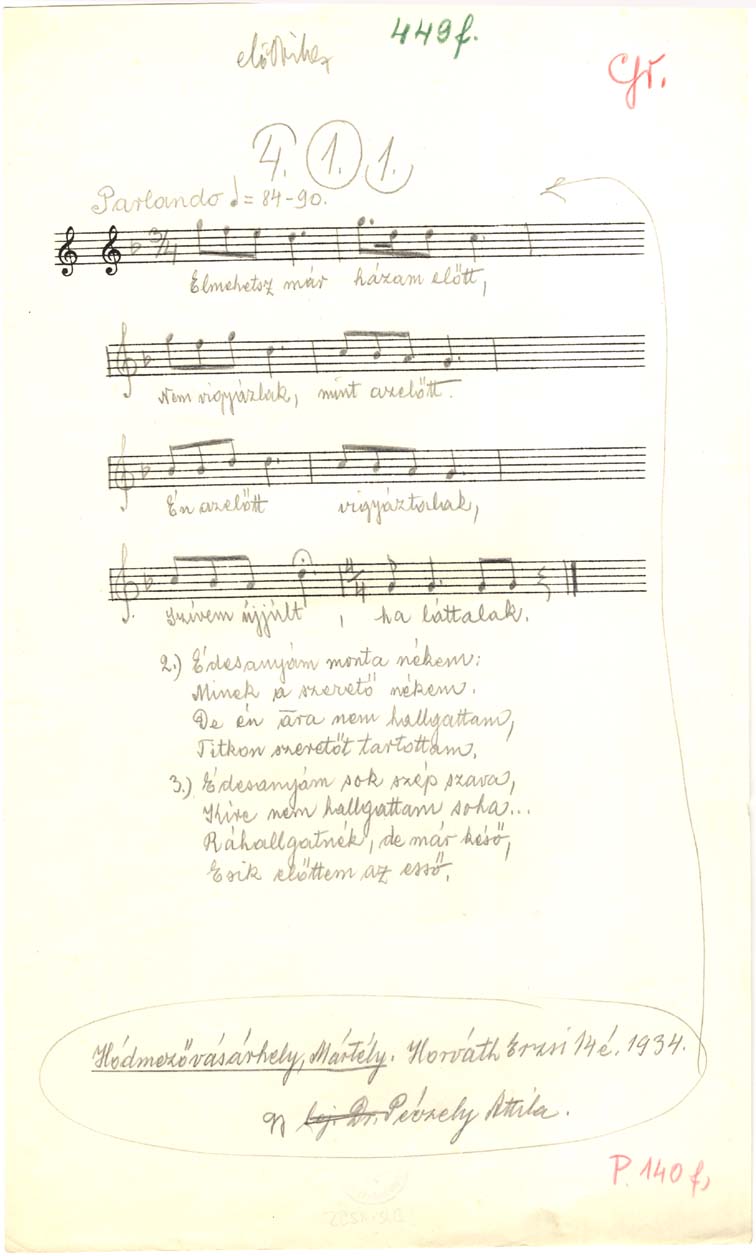 449f.
Gr.
4. 1. 1.
Parlando ♩= 84-90.
3/4
Elmehetsz már házam előtt,
Nem vigyázlak, mint azelőtt.
Én azelőtt vigyáztalak,
Szívem újjúlt, ha láttalak.
4/4
2.) Édesanyám monta nékem:
Minek a szerető nékem.
De én āra nem hallgattam,
Titkon szeretőt tartottam.
3.) Édesanyám sok szép szava,
Kire nem hallgattam soha...
Ráhallgatnék, de már késő,
Esik előttem az esső.
Hódmezővásárhely, Mártély. Horváth Erzsi 14 é. 1934.
Dr. Péczely Attila.
P. 140 f,